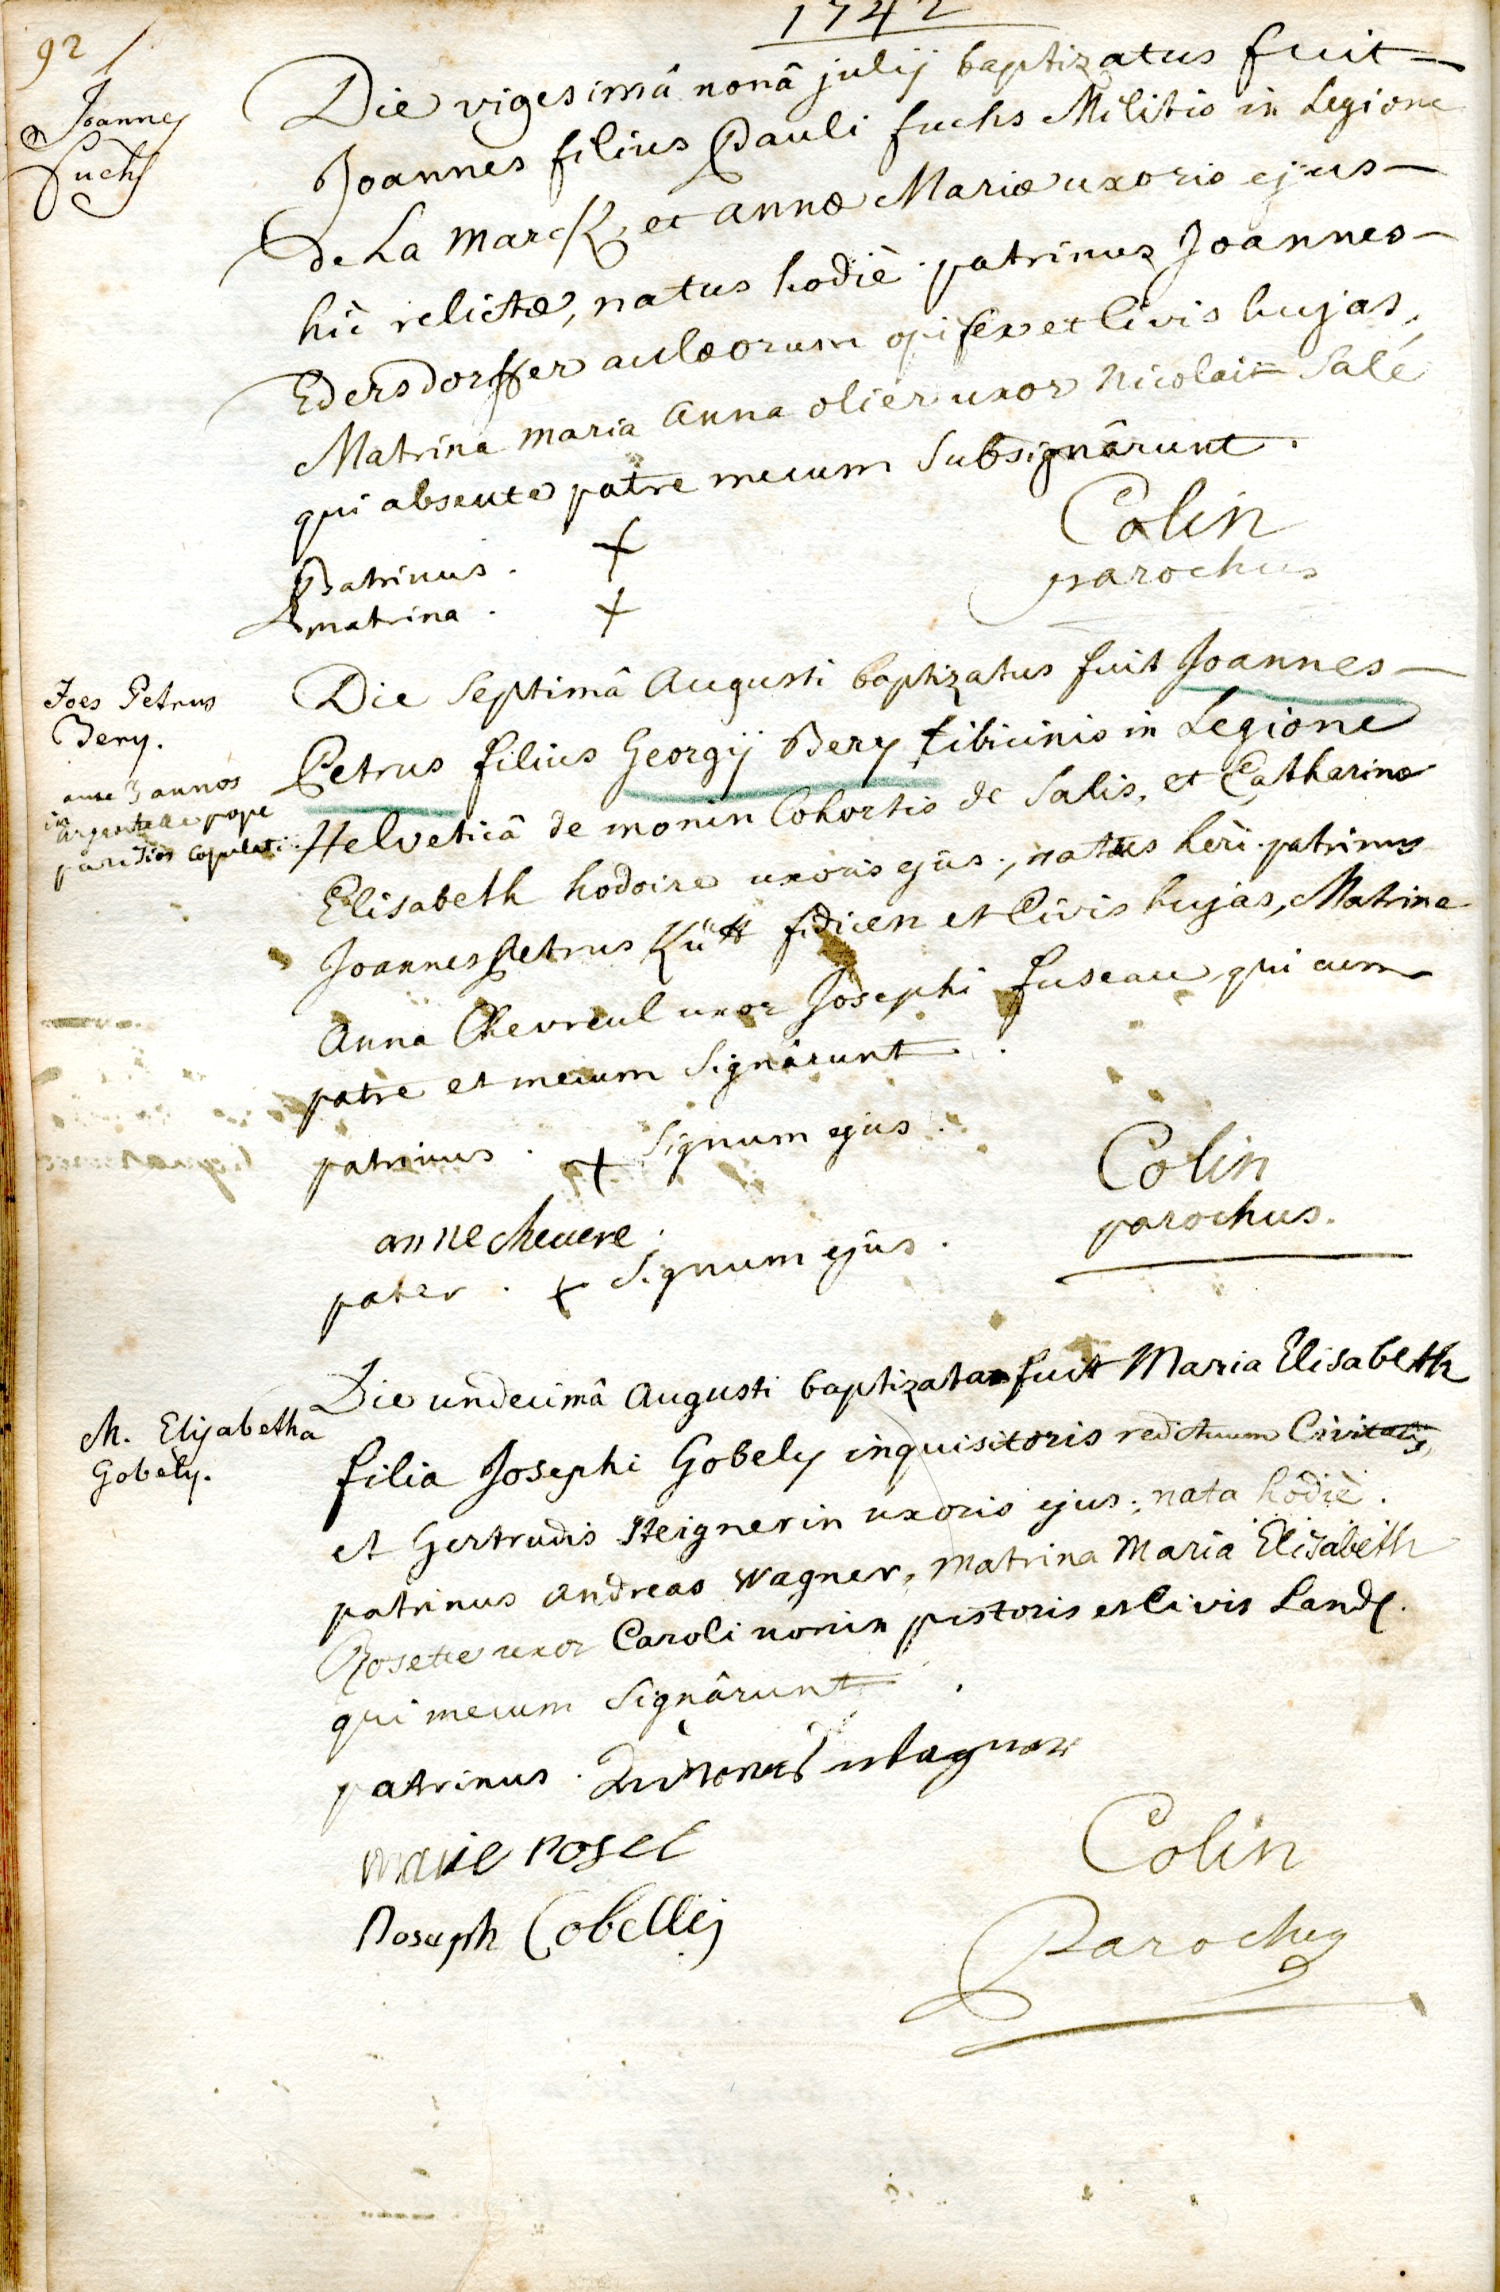 1742
92
Joannes
Fuchs
Die vigesimâ nonâ julij baptizatus fuit
Joannes filius Pauli fuchs Militis in Legione
de La Marck, et annæ Mariæ uxoris ejus
hìc relictæ, natus hodiè. patrinus Joannes
Edersdorffer aulæorum opifex et Civis hujas,
Matrina maria anna olier uxor Nicolai Salé
qui absente patre mecum Subsignârunt.
Patrinus. +
matrina. +
Colin
parochus
Joes Petrus
Bery.
ante 3 annos
in
pope
copulati
Die Septimâ Augusti baptizatus fuit Joannes
Petrus filius Georgij Bery tibicinis in Legione
Helveticâ de monin Cohortis de Salis, et Catharinæ
Elisabeth hodoire uxoris ejus, natus heri. patrinus
Joannes Petrus Kütt fidicen et Civis hujas, Matrina
Anna Chevreul uxor Josephi fuseau, qui cum
patre et mecum Signârunt.
patrinus. + Signum ejus.
anne chevere.
pater. + Signum ejus.
Colin
parochus.
M. Elisabetha
Gobely.
Die undecimâ Augusti baptizata fuit Maria Elisabeth
filia Josephi Gobely inquisitoris redituum Civitatis,
et Gertrudis Steignerin uxoris ejus, nata hodiè.
patrinus andreas Wagner, matrina Maria Elisabeth
Rosette uxor Caroli nonin pistoris et Civis Land.
qui mecum Signârunt.
patrinus. Wagner
marie rosel
Joseph Cobellij
Colin
Parochus